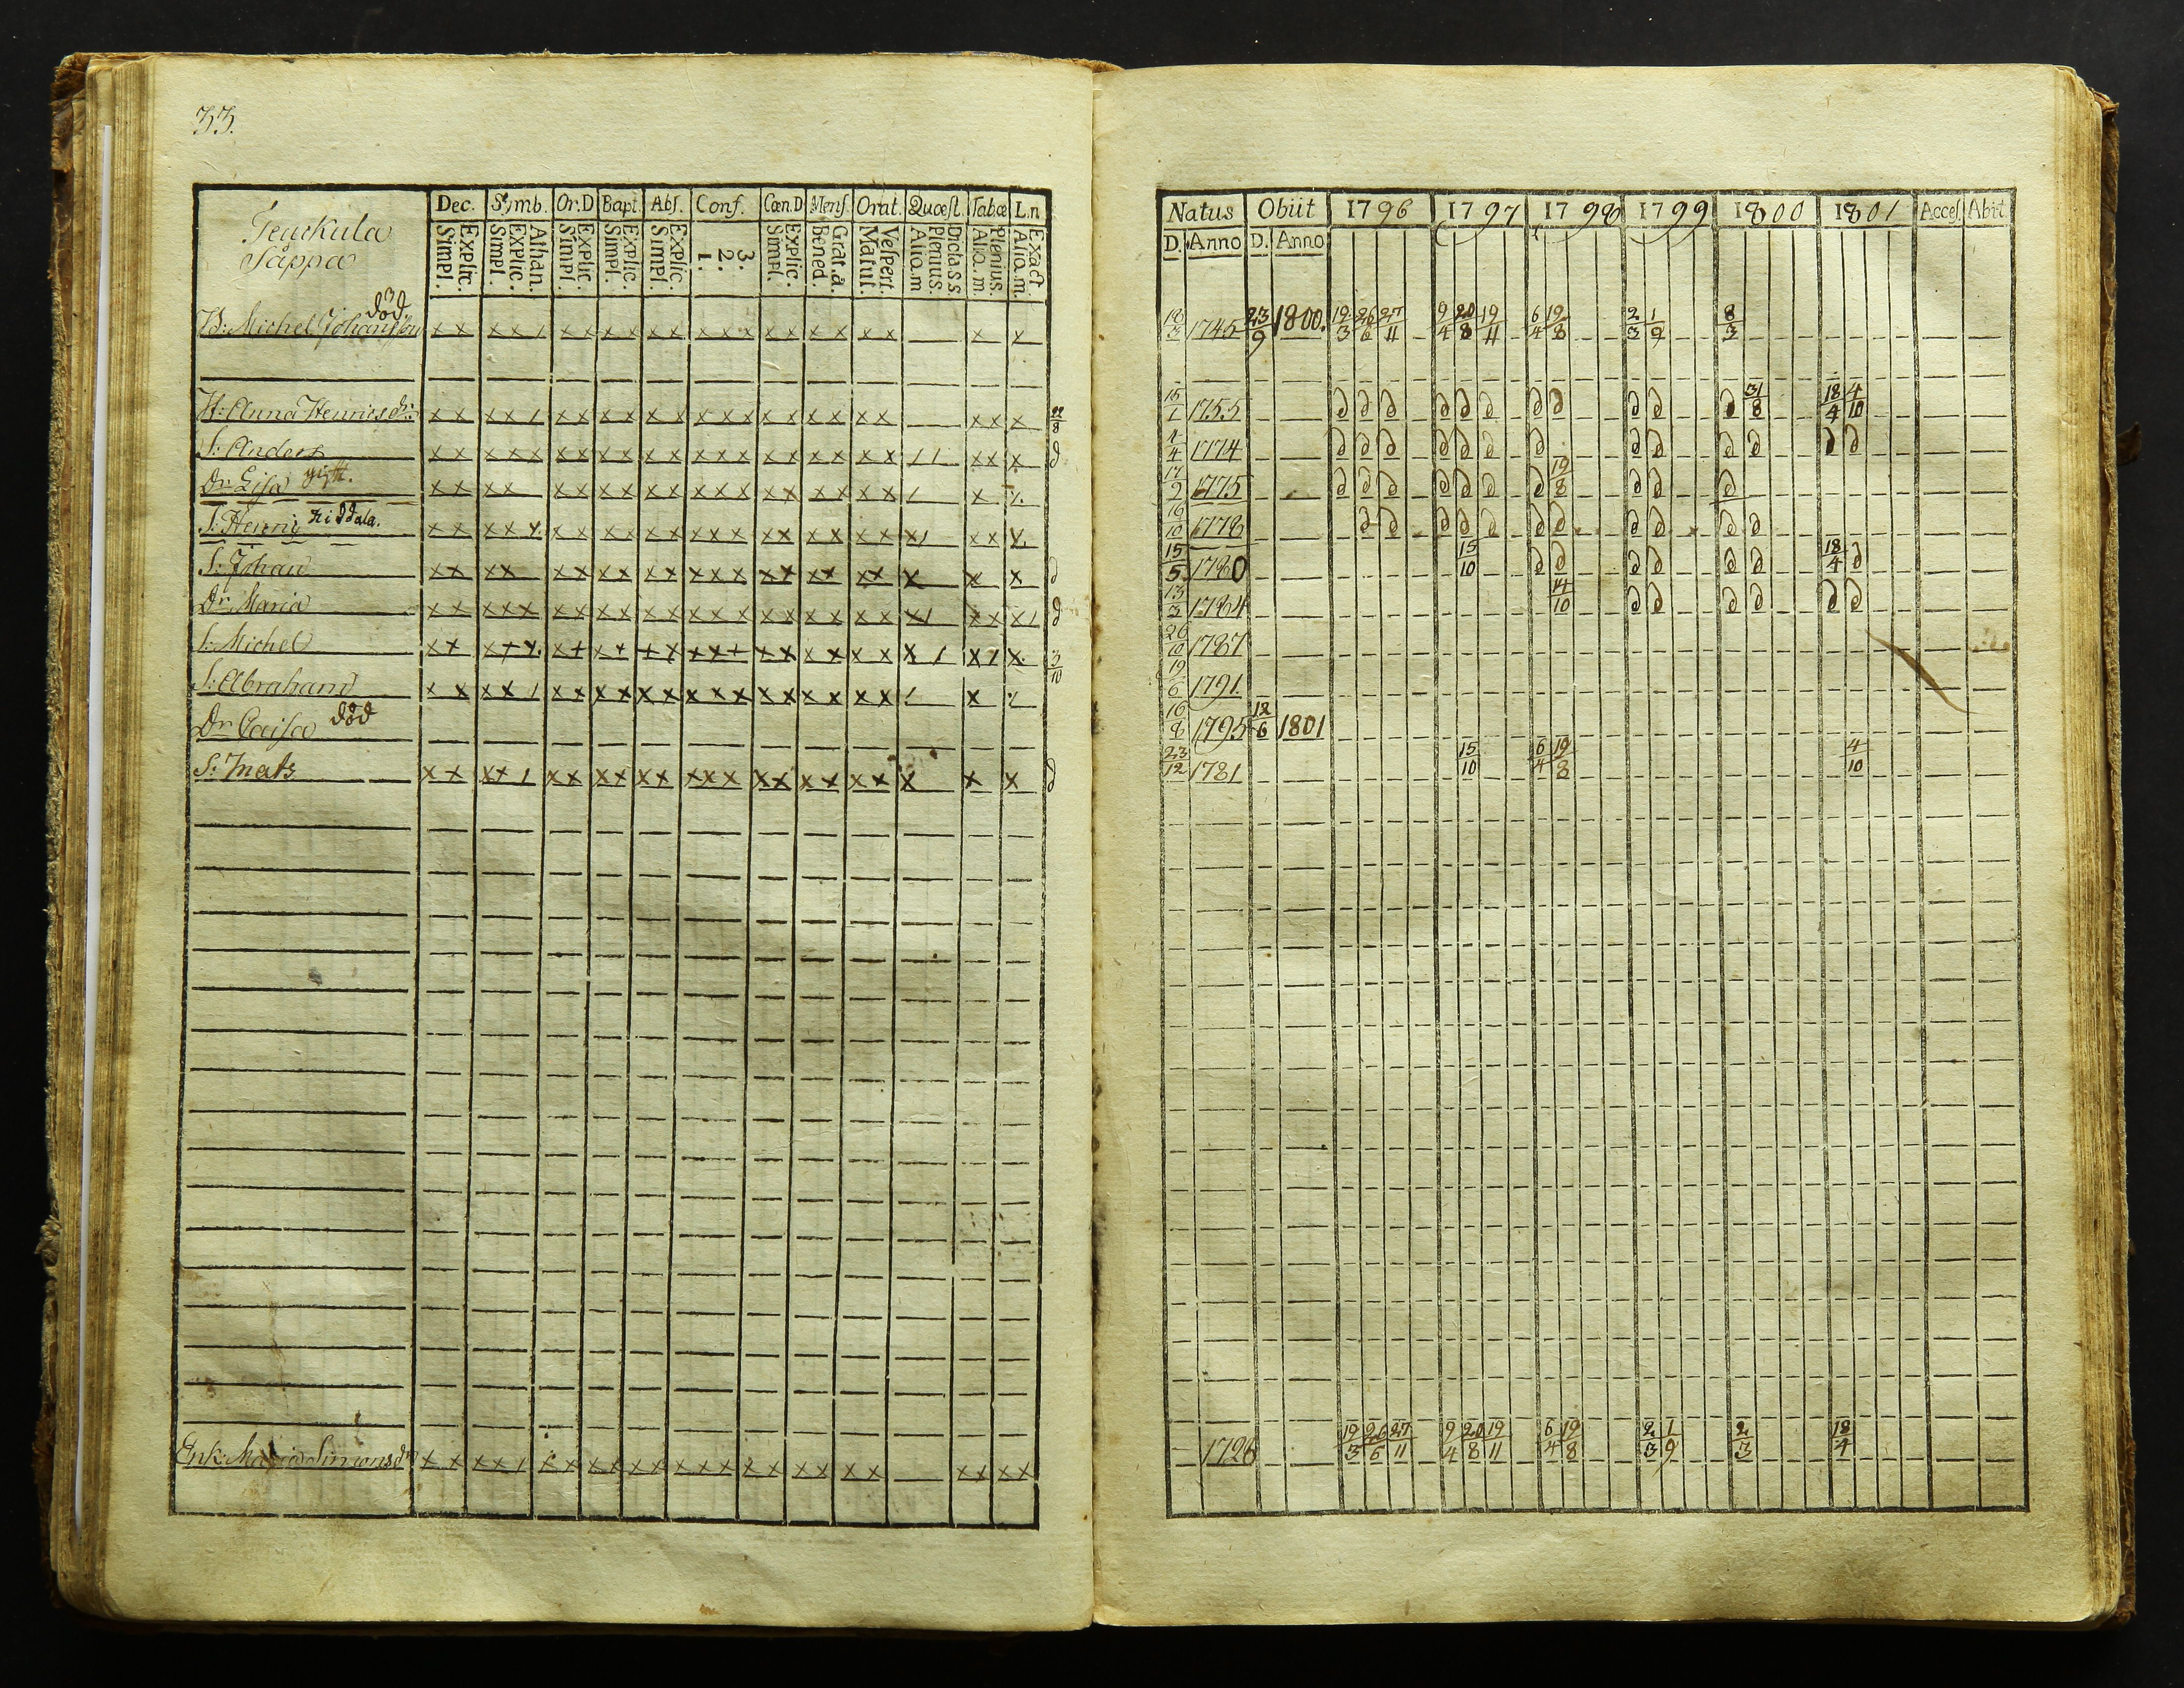 33.
Dec. Symb. Or.D Bapt. Abs. Conf. Cœn.D Mens. Orat. Quœst. Tabœ L.n
Säppä
Explic. Simpl. Athan. Explic. Simpl. Explic. Simpl. Explic. Simpl. Explic. Simpl. 3. 2. 1. Explic. Simpl. Grat.a. Bened. Vespert. Matut. Dicta s.s. Plenius. Aliq.m Plenius. Aliq.m. Exact. Aliq.m.
död
B: Michel Johansson x x x x / x x x x x x x x x x x x x x x x x
H: Anna Henricsdr x x x x / x x x x x x x x x x x x x x x x x x 22/8
S: Anders x x x x x x x x x x x x x x x x x x x x / / x x x d
Dr Lisa gift. x x x x x x x x x x x x x x x x x x x / x x
S: Henric Hiddala. x x x x x x x x x x x x x x x x x x x x x / x x x
S: Johan x x x x x x x x x x x x x x x x x x x x x x d
Dr Maria x x x x x x x x x x x x x x x x x x x x x / x x x / d
S: Michel x x x x x x x x x x x x x x x x x x x x x / x / x 3/10
S: Abraham x x x x / x x x x x x x x x x x x x x x / x x
Dr Caisa död
S: Mats x x x x / x x x x x x x x x x x x x x x x x x d
Enk: Maria Simonsdr x x x x / x x x x x x x x x x x x x x x x x x x
Natus Obiit 1796 1797 1798 1799 1800 1801 Acces. Abit
D. Anno D. Anno
18/3 1745 23/9 1800. 19/3 26/6 27/11 9/4 20/8 19/11 6/4 19/8 2/3 1/9 8/3
16/1 1755 d d d d d d d d d d d 31/8 18/4 4/10
4/4 1774 d d d d d d d d d d d d d
17/2 1775 d d d d d d d 19/8 d d d
16/10 1778 d d d d d d d d d d d
15/5 1780 15/10 d d d d d d 18/4 d
13/3 1784 14/10 d d d d d d
26/10 1787
19/6 1791
16/8 1795 18/6 1801
23/12 1781 15/10 6/4 19/8 4/10
1726 19/3 26/6 27/11 9/4 20/8 19/11 6/4 19/8 2/3 1/9 2/3 18/4